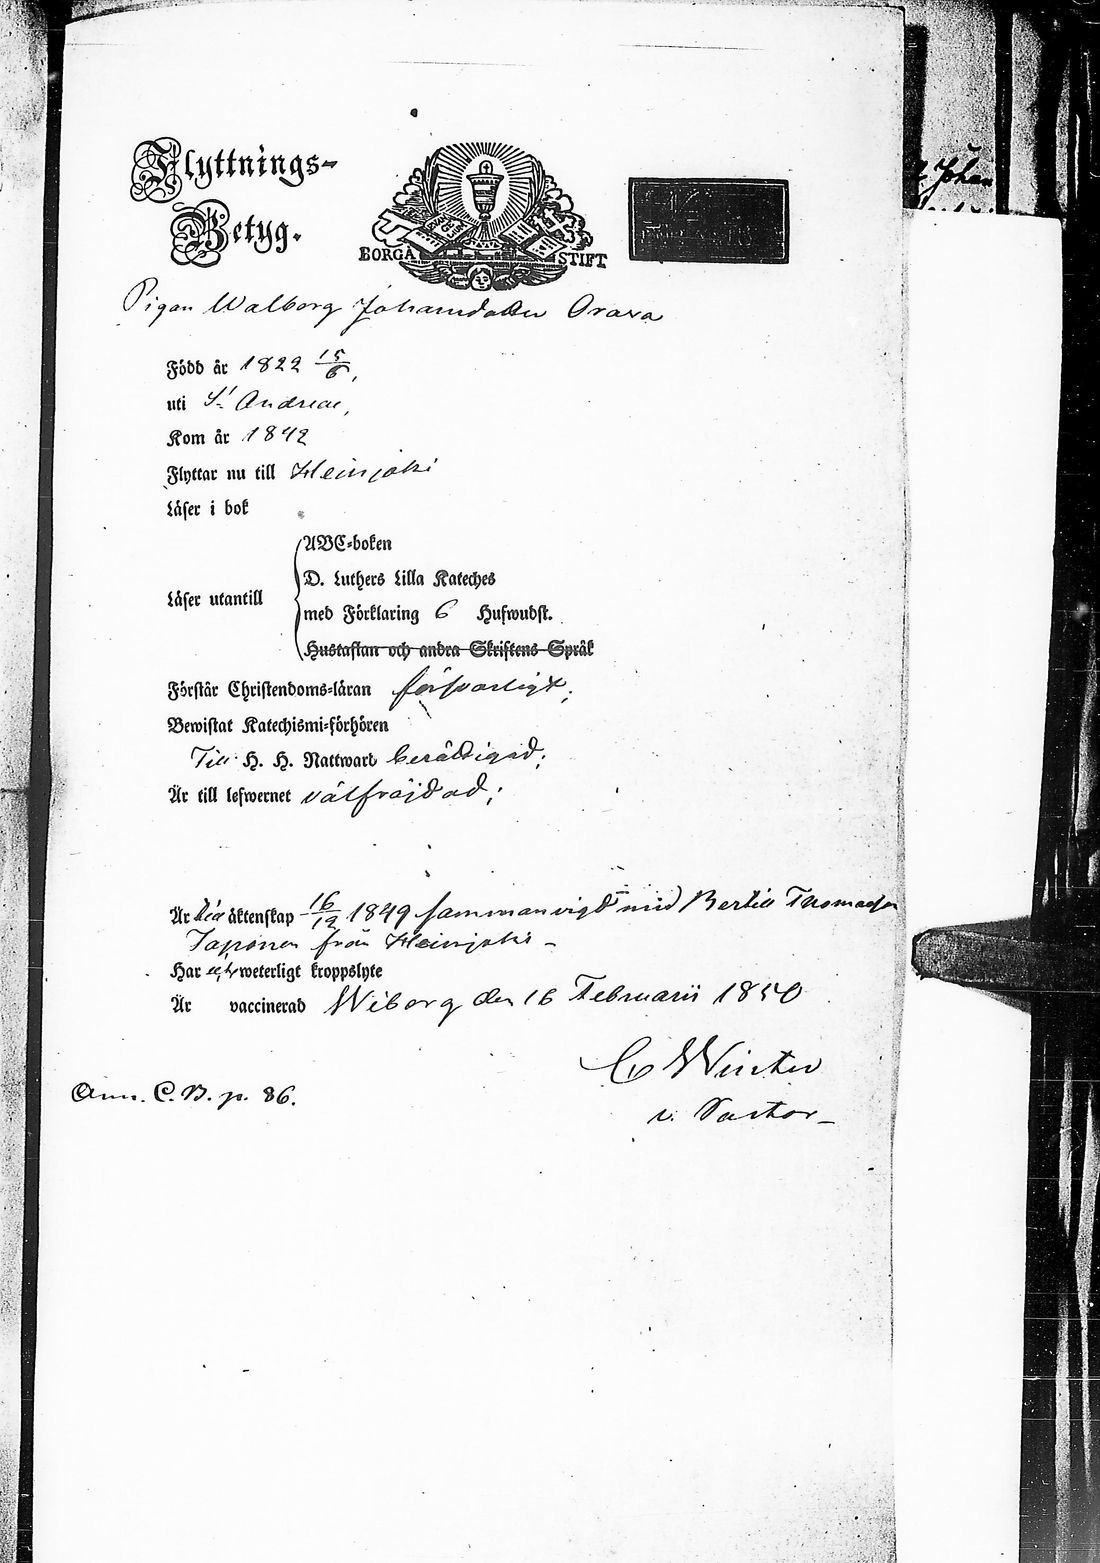 Flyttnings-
Betyg.
EVAN
GE
LIUM
BORGÅ STIFT
Pigan Walborg Johansdotter Orava
Född år 1822 15/6,
uti St Andreae,
Kom år 1842
Flyttar nu till Heinjoki
Läser i bok
ABC-boken
D. Luthers Lilla Kateches
Läser utantill
med Förklaring 6 Hufwudst.
Hustaflan och andra Skriftens Språk
Förstår Christendoms-läran försvarligt;
Bewistat Katechismi-förhören
Till H. H. Nattward berättigad;
Är till lefwernet välfräjdad;
Är till äktenskap 16/12 1849 sammanvigd med Bertill Thomasson
Japonen från Heinjoki -
Har ej weterligt kroppslyte
Är vaccinerad Wiborg den 16 Februarii 1850
C Winter
v. Pastor -
Ann. C. B. p. 86.
Johan